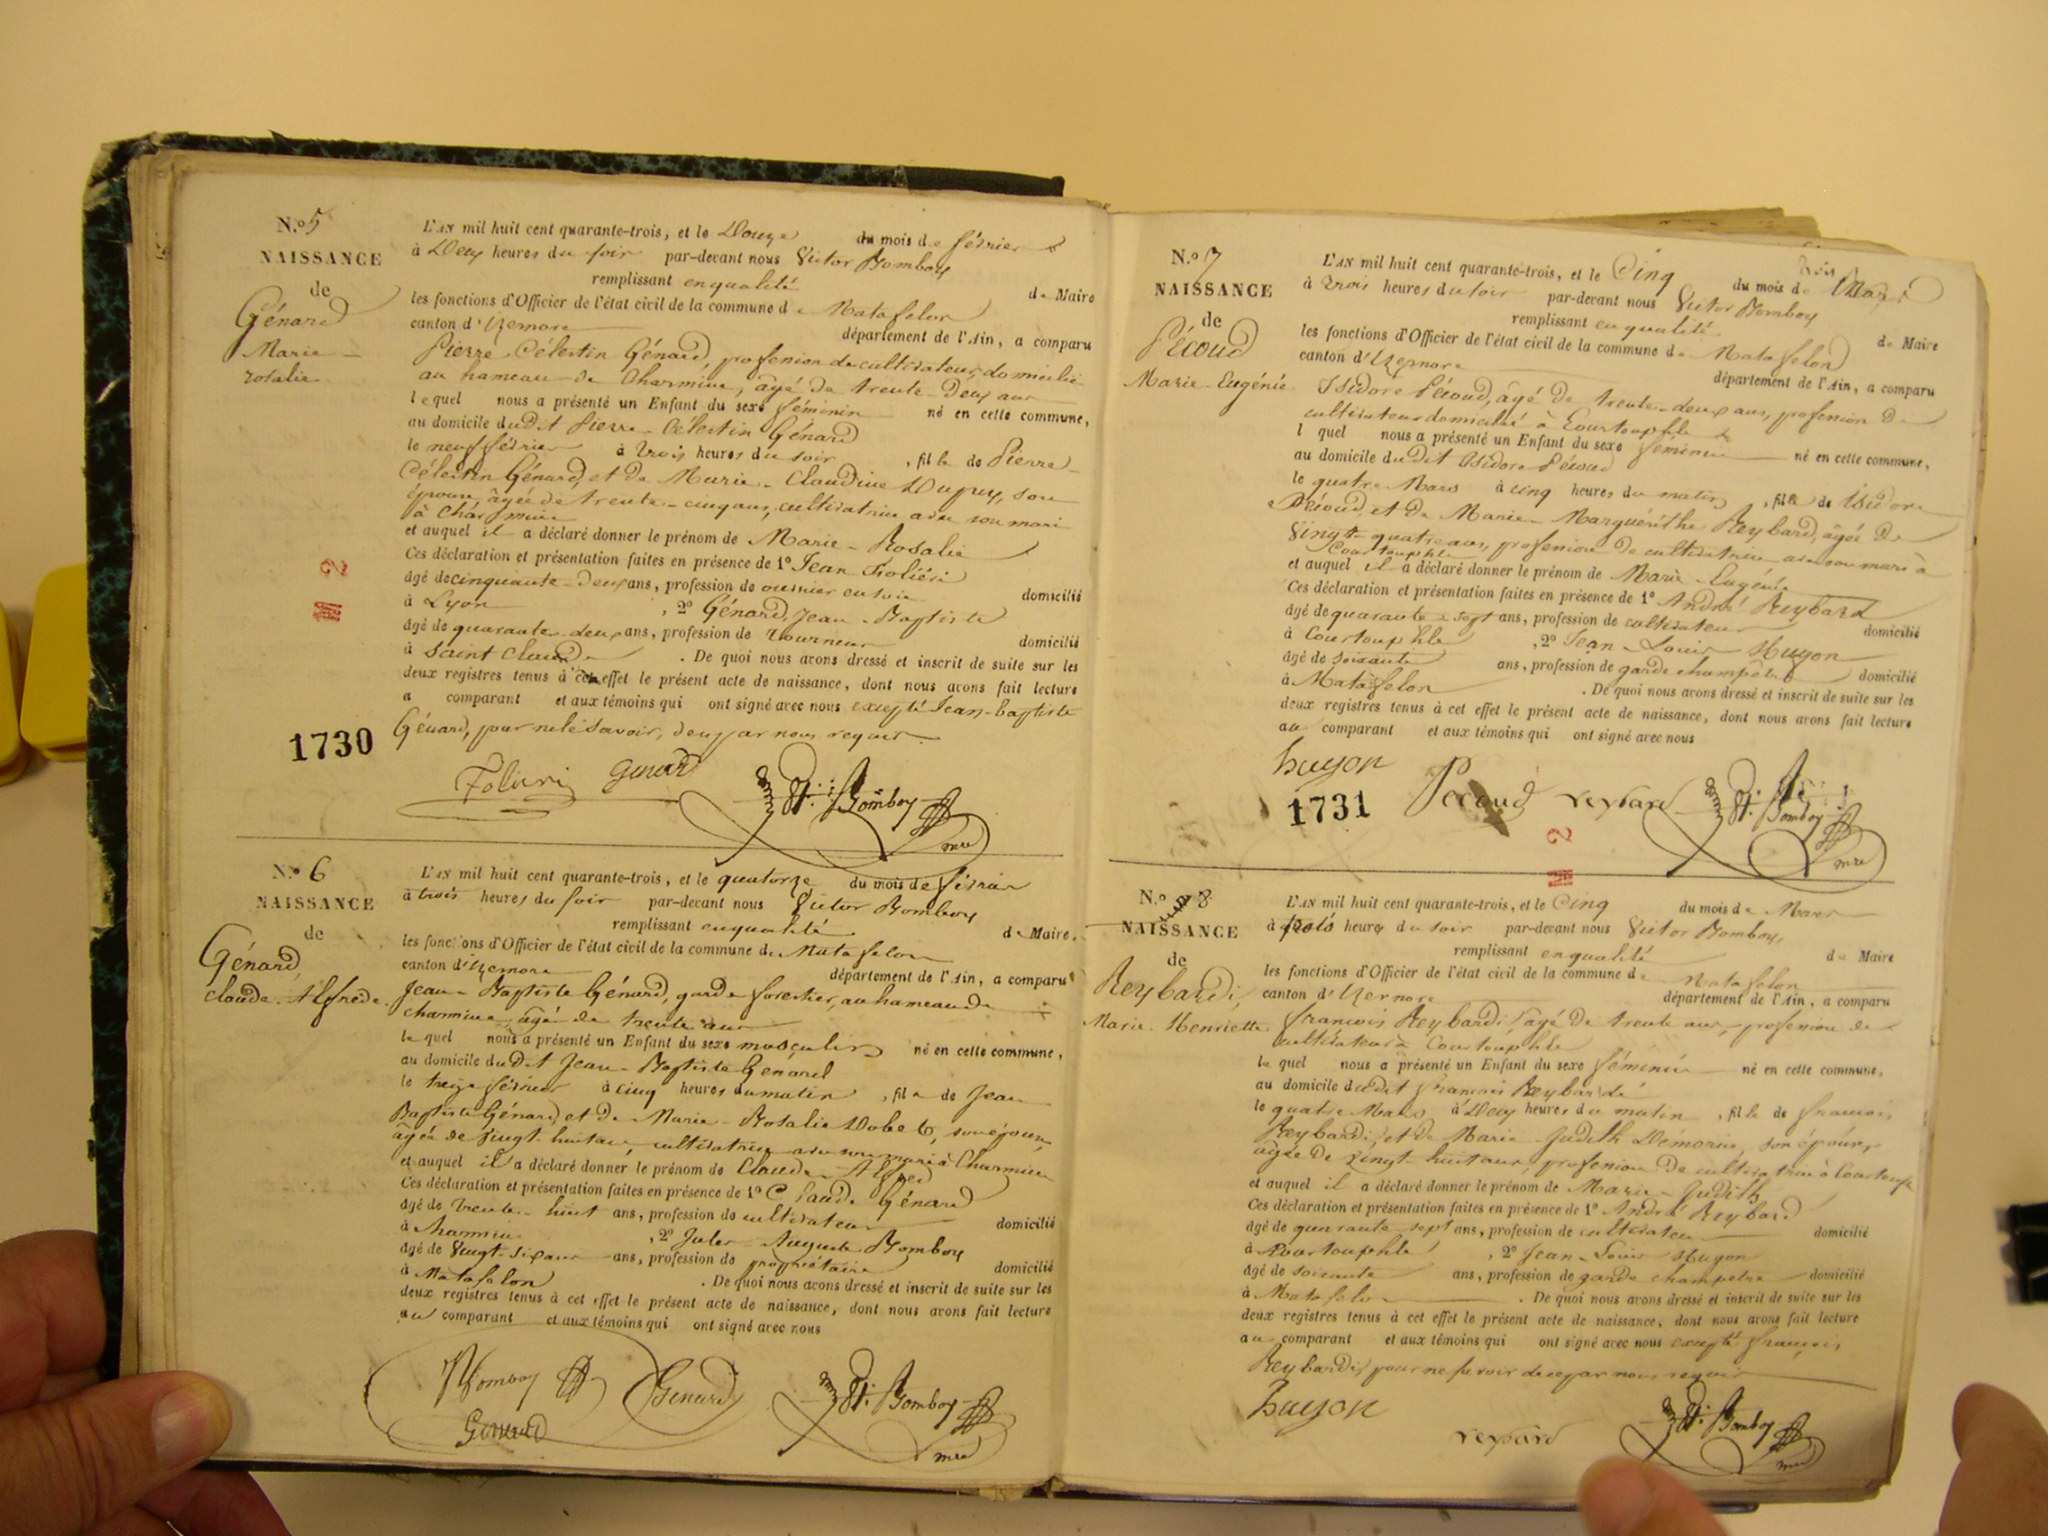 N.º 5
NAISSANCE
de
Génard
Marie
rosalie
L'AN mil huit cent quarante-trois, et le Douze du mois de février
à Deux heures du soir par-devant nous Victor Bomboy
remplissant en qualité de Maire
les fonctions d'Officier de l'état civil de la commune de Matafelon
canton d'Izernore département de l'Ain, a comparu
Pierre Célestin Génard, profession de cultivateur, domicilié
au hameau de Charmine, âgé de trente-deux ans
lequel nous a présenté un Enfant du sexe féminin né en cette commune,
au domicile dudit Pierre-Célestin Génard
le neuf février à trois heures du soir, fille de Pierre-
Célestin Génard, et de Marie-Claudine Dupuy, son
épouse, âgée de trente-cinq ans, cultivatrice avec son mari
à Charmine
et auquel il a déclaré donner le prénom de Marie-Rosalie
Ces déclaration et présentation faites en présence de 1º Jean
âgé de cinquante-deux ans, profession de ouvrier en soie domicilié
à Lyon, 2º Génard, Jean-Baptiste
âgé de quarante-deux ans, profession de tourneur domicilié
à Saint Claude. De quoi nous avons dressé et inscrit de suite sur les
deux registres tenus à cet effet le présent acte de naissance, dont nous avons fait lecture
a comparant et aux témoins qui ont signé avec nous excepté Jean-baptiste
Génard, pour ne le savoir, de ce par nous requis
1730
Génard Vr. Bomboy
mre
N.º 6
NAISSANCE
de
Génard
Claude-Alfrede.
L'AN mil huit cent quarante-trois, et le quatorze du mois de février
à trois heures du soir par-devant nous Victor Bomboy
remplissant en qualité de Maire,
les fonctions d'Officier de l'état civil de la commune de Matafelon
canton d'Izernore département de l'Ain, a comparu
Jean-Baptiste Génard, garde forestier, au hameau de
charmine, âgé de trente ans
lequel nous a présenté un Enfant du sexe masculin né en cette commune,
au domicile dudit Jean-Baptiste Génard
le treize février à cinq heures du matin, fils de Jean
Baptiste Génard, et de Marie-Rosalie, son épouse,
âgée de vingt-huit ans, cultivatrice avec son mari à Charmine
et auquel il a déclaré donner le prénom de Claude-Alfred
Ces déclaration et présentation faites en présence de 1º Claude Génard
âgé de trente-huit ans, profession de cultivateur domicilié
à charmine, 2º Jules-Auguste Bomboy
âgé de vingt-six ans ans, profession de propriétaire domicilié
à Matafelon. De quoi nous avons dressé et inscrit de suite sur les
deux registres tenus à cet effet le présent acte de naissance, dont nous avons fait lecture
au comparant et aux témoins qui ont signé avec nous
Bomboy Genard Vr. Bomboy
Genard mre
N.º 7
NAISSANCE
de
Pécoud
Marie-Eugénie.
L'AN mil huit cent quarante-trois, et le Cinq du mois de Mars
à trois heures du soir par-devant nous Victor Bomboy
remplissant en qualité de Maire
les fonctions d'Officier de l'état civil de la commune de Matafelon
canton d'Izernore département de l'Ain, a comparu
Isidore Pécoud, âgé de trente-deux ans, profession de
cultivateur domicilié à Courtouphle
lquel nous a présenté un Enfant du sexe féminin né en cette commune,
au domicile dudit Isidore Pécoud
le quatre Mars à cinq heures du matin, fille de Isidore
Pécoud, et de Marie-Marguérithe Reybard, âgée de
vingt-quatre ans, profession de cultivatrice avec son mari à
Courtouphle
et auquel il a déclaré donner le prénom de Marie-Eugénie
Ces déclaration et présentation faites en présence de 1º André Reybard
âgé de quarante-sept ans, profession de cultivateur domicilié
à Courtouphle, 2º Jean-Louis Hugon
âgé de soixante ans, profession de garde champêtre domicilié
à Matafelon. De quoi nous avons dressé et inscrit de suite sur les
deux registres tenus à cet effet le présent acte de naissance, dont nous avons fait lecture
au comparant et aux témoins qui ont signé avec nous
hugon Pécoud reybard Vr. Bomboy
1731
mre
N.º 8
NAISSANCE
de
Reybardi,
Marie-Henriette.
L'AN mil huit cent quarante-trois, et le Cinq du mois de Mars
à trois heures du soir par-devant nous Victor Bomboy,
remplissant en qualité de Maire
les fonctions d'Officier de l'état civil de la commune de Matafelon
canton d'Izernore département de l'Ain, a comparu
francois Reybardi, âgé de trente ans, profession de
cultivateur à Courtouphle
lequel nous a présenté un Enfant du sexe féminin né en cette commune,
au domicile dudit francois Reybardi
le quatre Mars à Deux heures du matin, fille de francois,
Reybardi, et de Marie-Judith, son épouse,
âgée de vingt-huit ans, profession de cultivatrice à Courtouph
et auquel il a déclaré donner le prénom de Marie-Judith
Ces déclaration et présentation faites en présence de 1º André Reybard
âgé de quarante sept ans, profession de cultivateur domicilié
à Courtouphle, 2º Jean-Louis Hugon
âgé de soixante ans, profession de garde champetre domicilié
à Matafelon. De quoi nous avons dressé et inscrit de suite sur les
deux registres tenus à cet effet le présent acte de naissance, dont nous avons fait lecture
au comparant et aux témoins qui ont signé avec nous excepté francois,
Reybardi, pour ne savoir de ce par nous requis
hugon
reybard Vr. Bomboy
mre